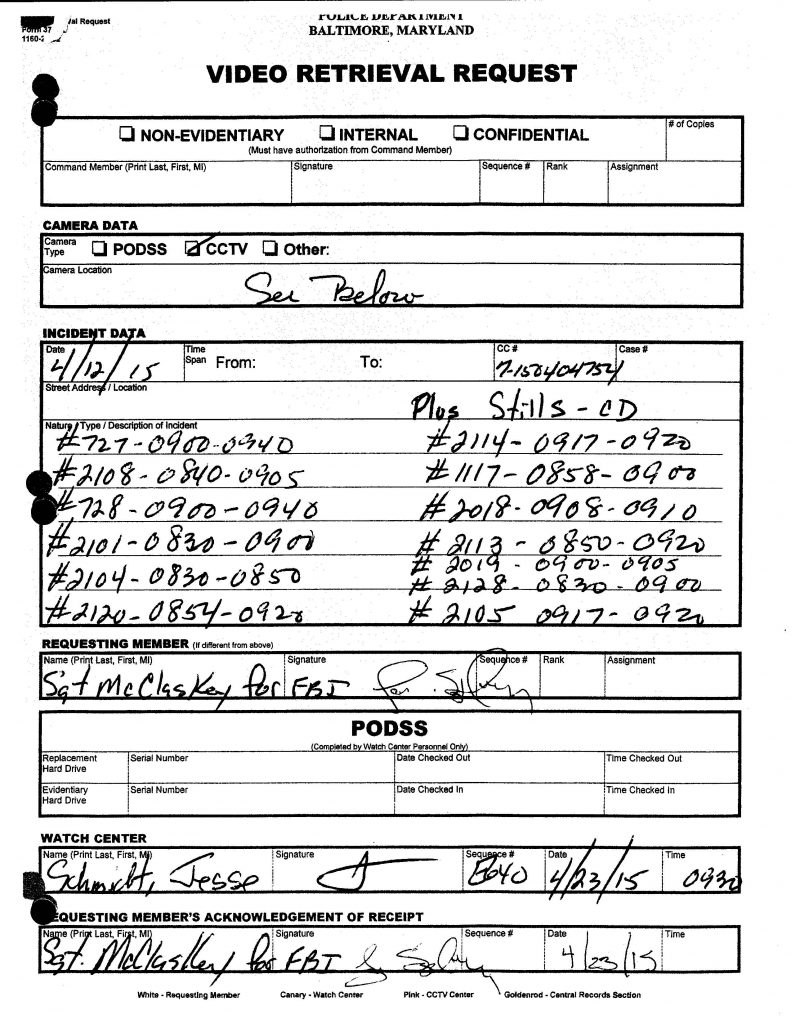 POLICE DEPARTMENT
BALTIMORE, MARYLAND
val Request
Form 37
1160-2
VIDEO RETRIEVAL REQUEST
# of Copies
NON-EVIDENTIARY INTERNAL CONFIDENTIAL
(Must have authorization from Command Member)
Command Member (Print Last, First, MI) Signature Sequence # Rank Assignment
CAMERA DATA
Camera Type PODSS CCTV Other:
Camera Location
See Below
INCIDENT DATA
Date Time Span From: To: CC # Case #
4/12/15 7-150404754
Street Address / Location
Plus Stills - CD
Nature / Type / Description of Incident
#727-0900-0940 #2114-0917-0920
#2108-0840-0905 #1117-0858-0900
#728-0900-0940 #2018-0908-0910
#2101-0830-0900 #2113-0850-0920
#2019-0900-0905
#2104-0830-0850 #2128-0830-0900
#2120-0854-0920 #2105 0917-0920
REQUESTING MEMBER (If different from above)
Name (Print Last, First, MI) Signature Sequence # Rank Assignment
Sgt McClaskey for FBI
PODSS
(Completed by Watch Center Personnel Only)
Replacement Hard Drive Serial Number Date Checked Out Time Checked Out
Evidentiary Hard Drive Serial Number Date Checked In Time Checked In
WATCH CENTER
Name (Print Last, First, MI) Signature Sequence # Date Time
Schmidt, Jesse E640 4/23/15 0930
REQUESTING MEMBER'S ACKNOWLEDGEMENT OF RECEIPT
Name (Print Last, First, MI) Signature Sequence # Date Time
Sgt. McClaskey for FBI 4/23/15
White - Requesting Member Canary - Watch Center Pink - CCTV Center Goldenrod - Central Records Section